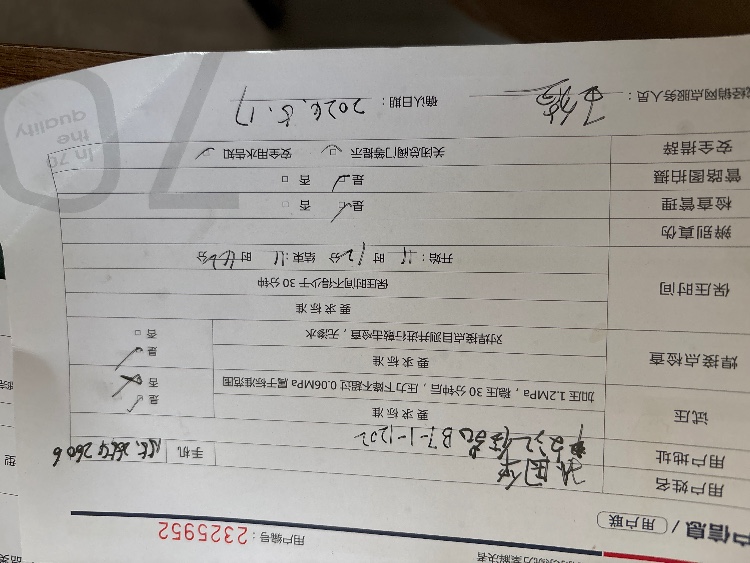 案解决者
户信息 / 用户联
用户编号：2325952
用户姓名
用户地址 B7-1-1202 手机
试压 要求标准 是
加压 1.2MPa，稳压 30 分钟后，压力下降不超过 0.06MPa 属于标准范围 否
焊接点检查 要求标准 是
对焊接点目测并进行敲击检查，无渗水 否
保压时间 要求标准
保压时间不得少于 30 分钟
开始：11 时 12 分 结束：11 时 42 分
辨别真伪
检查管理 是 否
管路图拍摄 是 否
安全措辞 关闭总阀门等提示 安全用水告知
经销网点服务人员： 确认日期：2026.5.17
70
In 70
the
quality